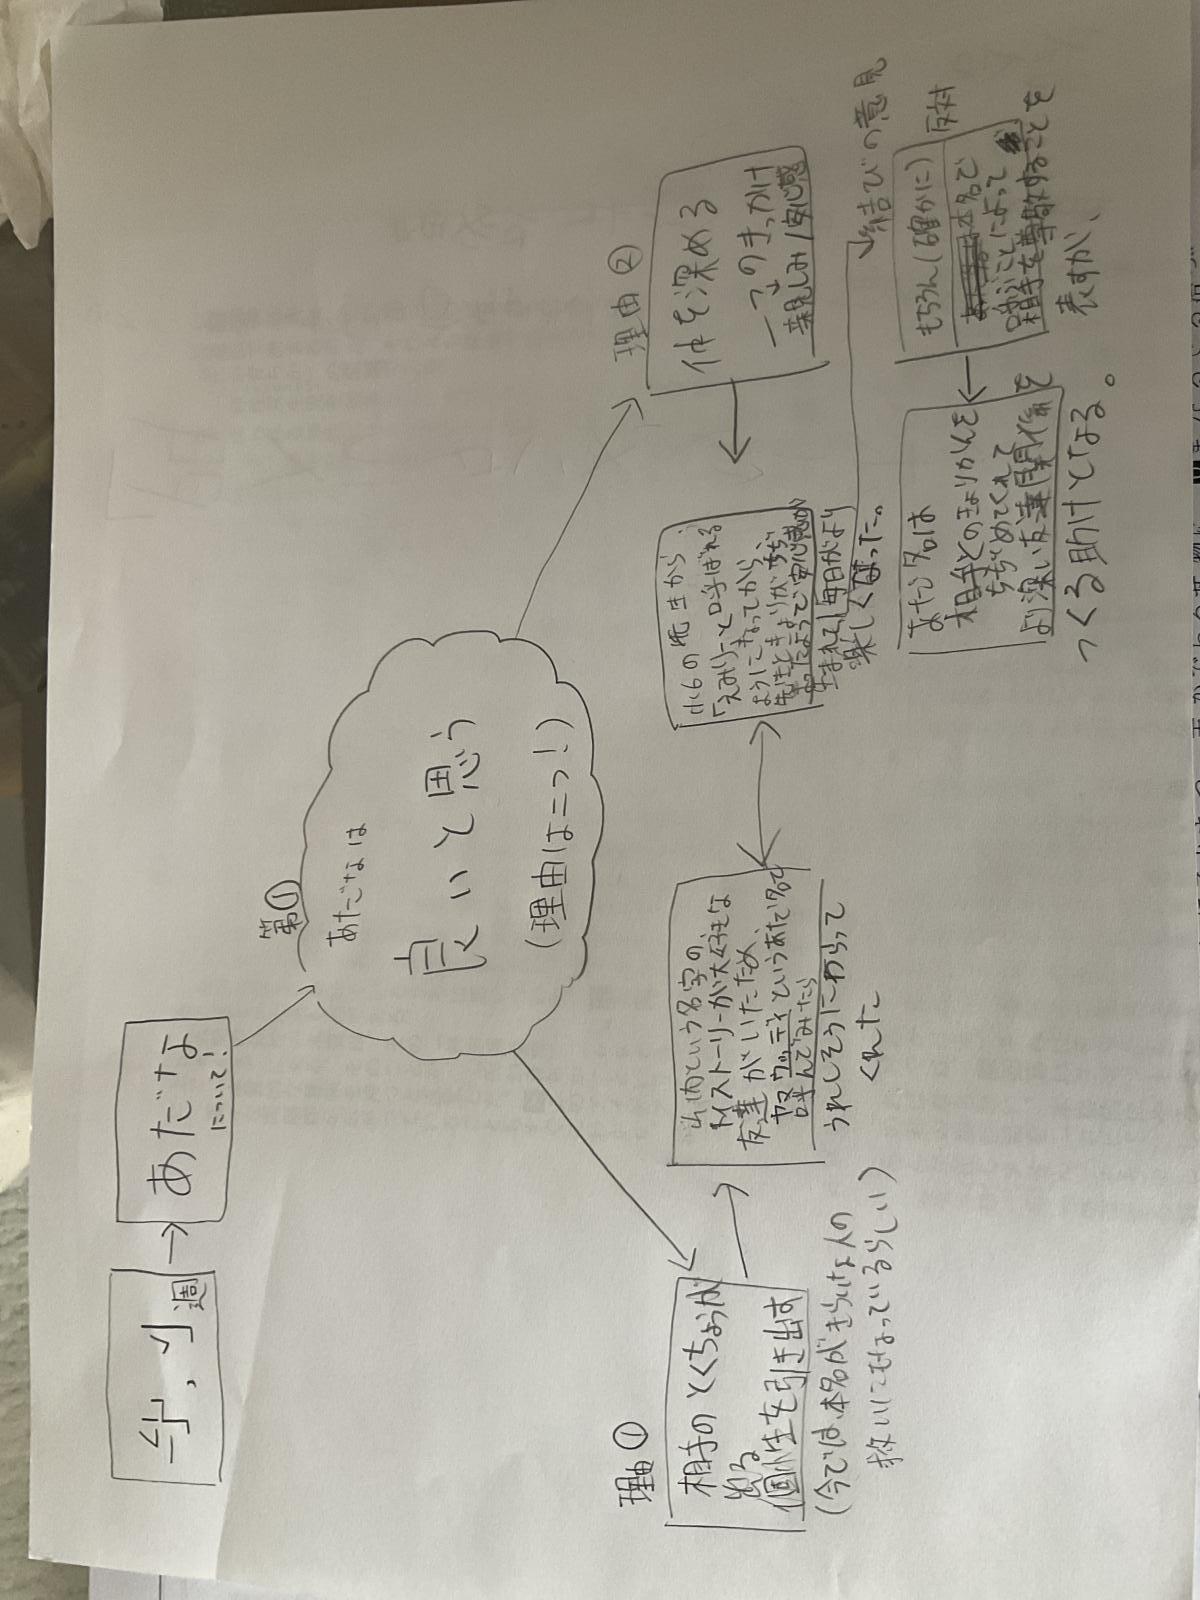 学、小
週
あだな
について!
第①
あだなは
良いと思う
(理由は二つ!)
理由①
相手のとくちょうが
出る
個性を引き出す
(今では、本名がきらいな人の
救いにもなっているらしい)
という名字の、
トイストーリーが大好きな
友達がいたため、
ウッディというあだ名で
呼んでみたら
うれしそうにわらって
くれた
理由②
仲を深める
一つのきっかけ
親しみ/安心感
小6の先生から、
「えみりー」と呼ばれる
ようになってから、
先生ときょりがちぢ
まったようで安心感が
生まれて、毎日がより
楽しくなった。
結びの意見
もちろん(確かに)
反対
本名で
呼ぶことによって
相手を尊敬することを
表すが、
あだ名は
相手とのきょりかんを
ちぢめてくれて
より深い友達関係を
つくる助けとなる。